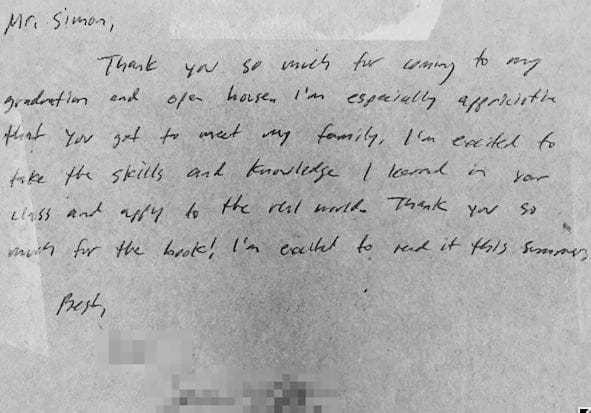 Mr. Simon,
Thank you so much for coming to my
graduation and open house. I'm especially appriciative
that you got to meet my family. I'm excited to
take the skills and knowledge I learned in your
class and apply to the real world. Thank you so
much for the book! I'm excited to read it this summer.
Best,